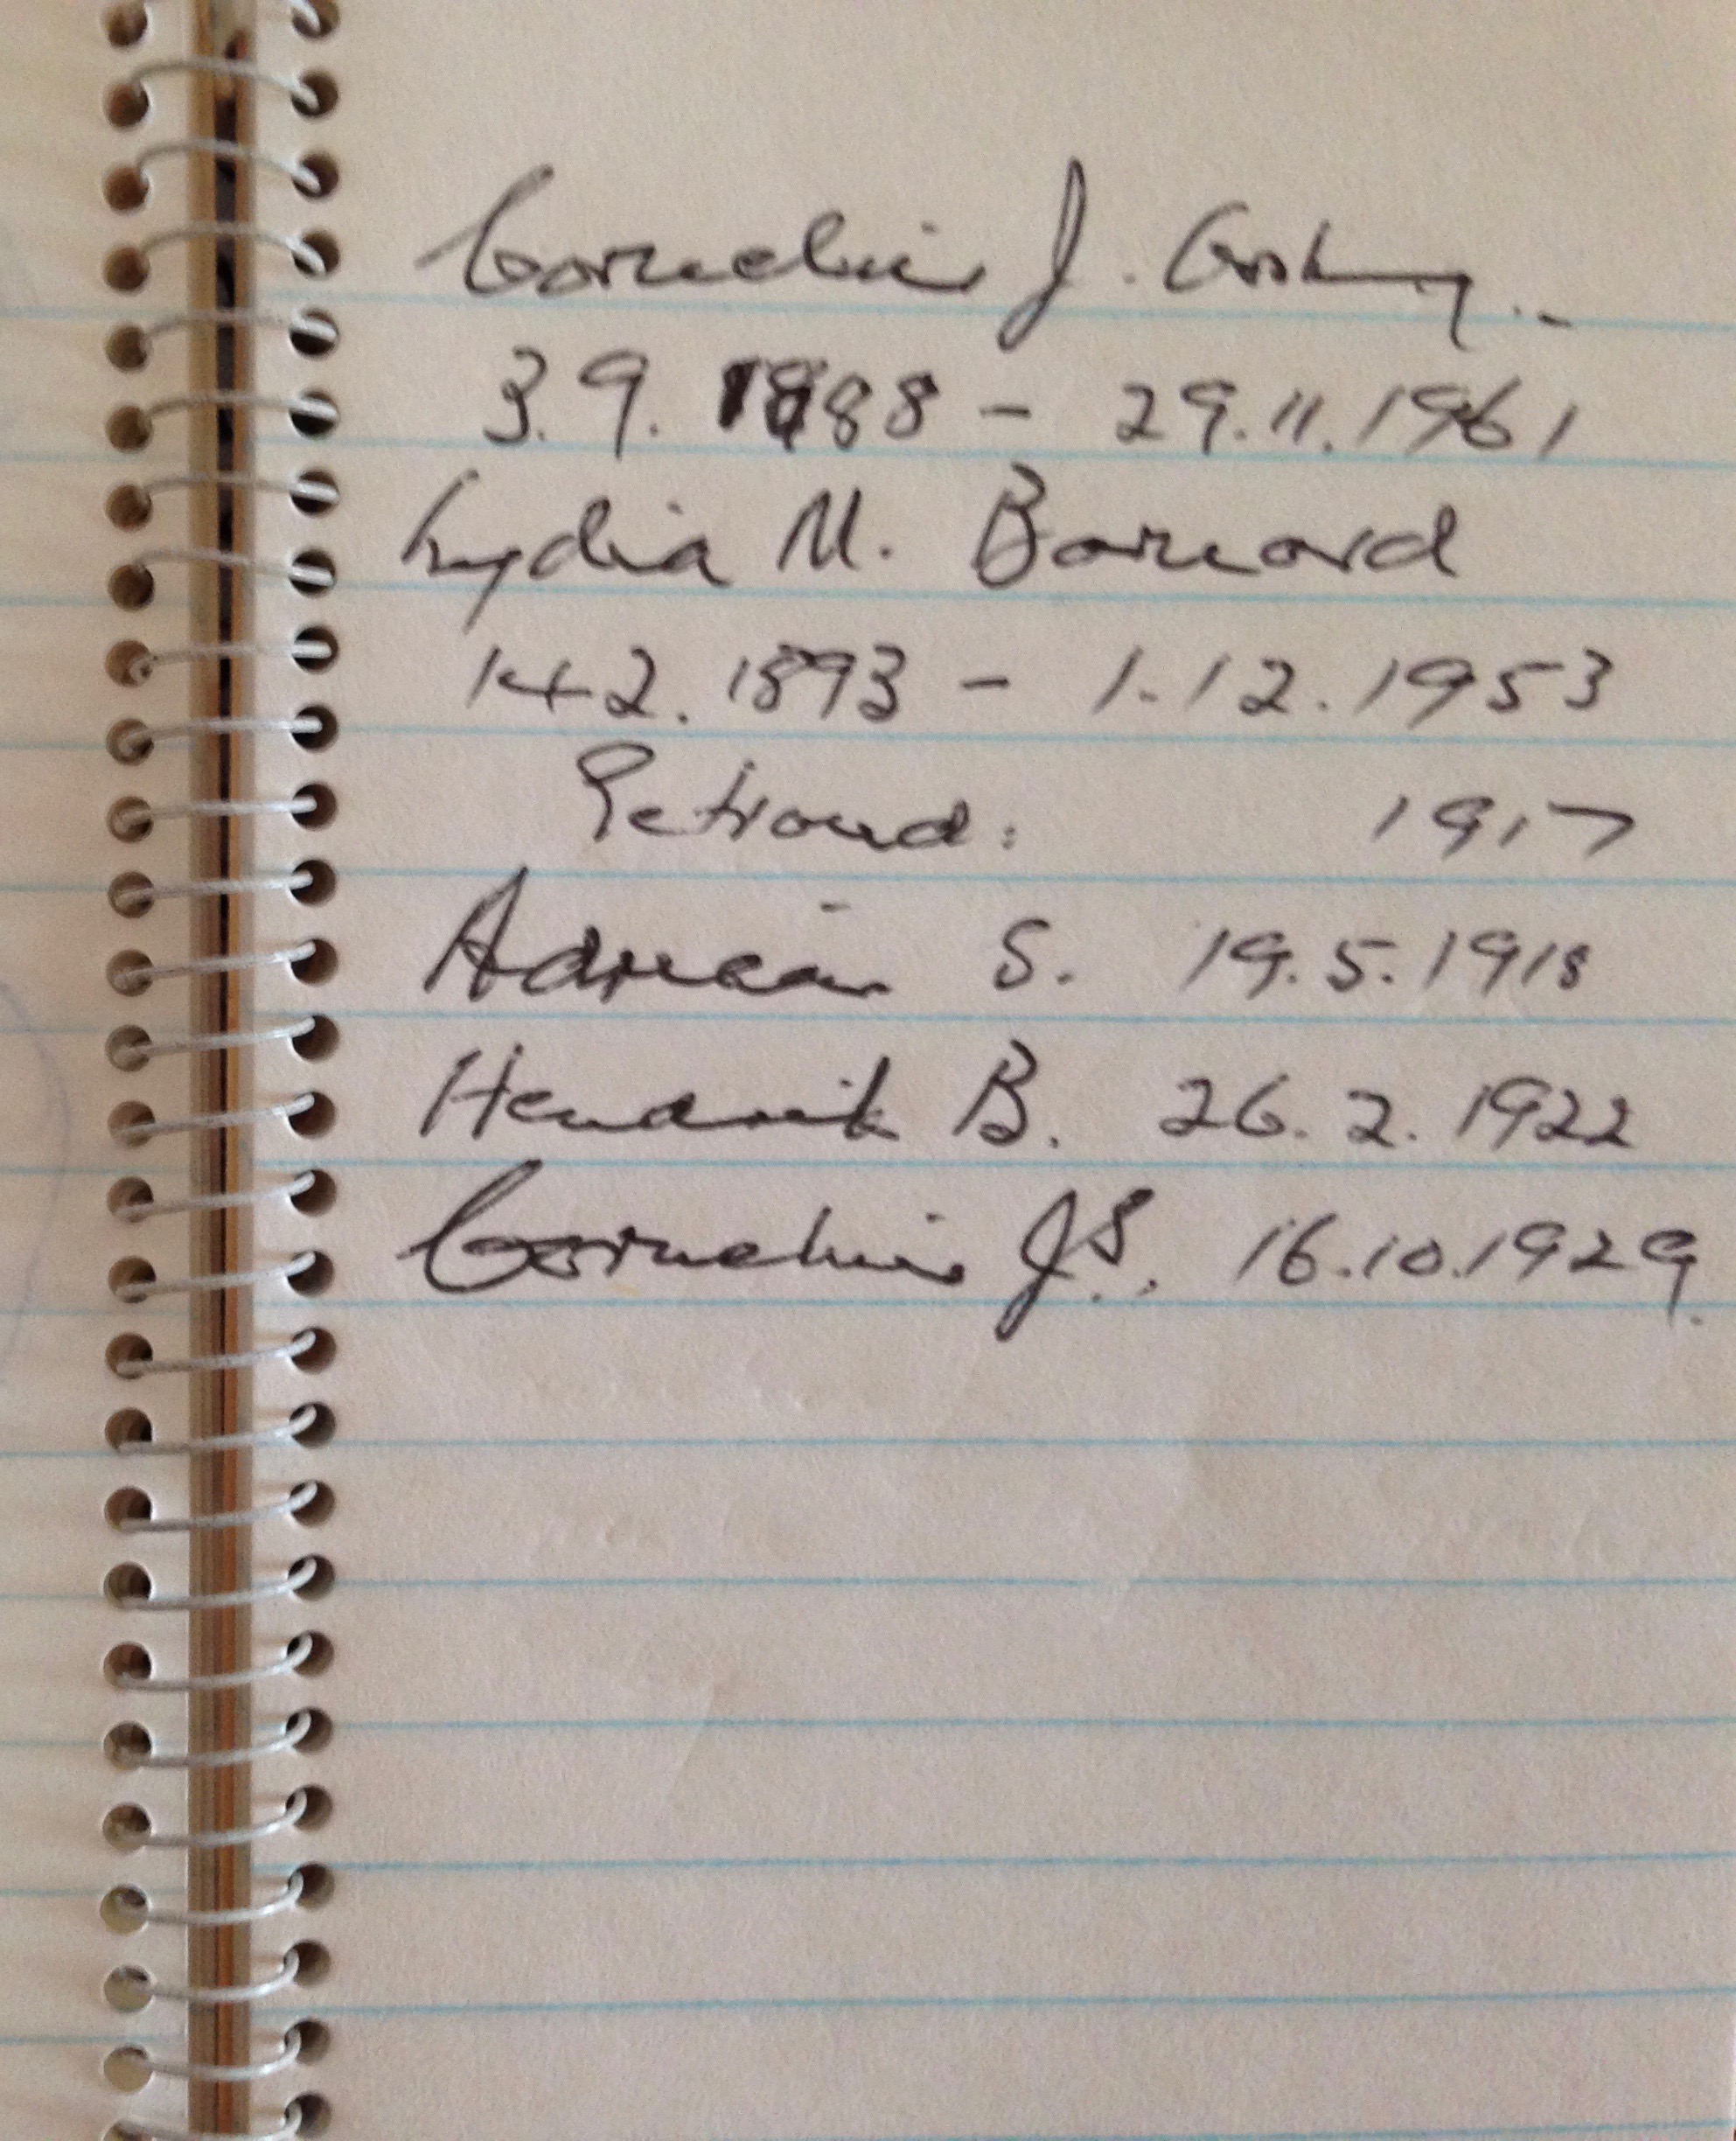 Cornelius J.
3.9. 1888 - 29.11.1961
Lydia M. Barnard
14.2.1893 - 1.12.1953
Getroud: 1917
Adriaan S. 19.5.1918
Hendrik B. 26.2.1922
Cornelius J.S. 16.10.1929.